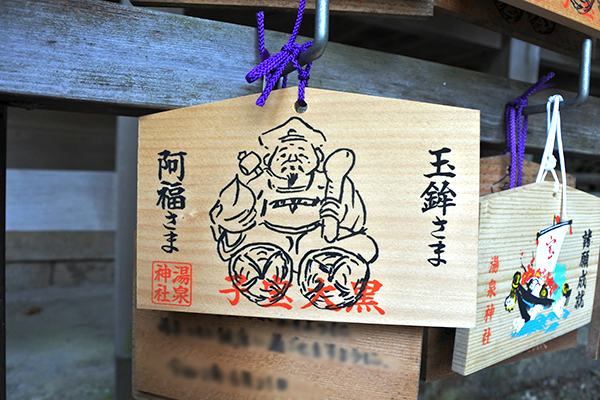 玉鉾さま
阿福さま
子宝大黒
湯泉
神社
諸願成就
宝
湯泉神社